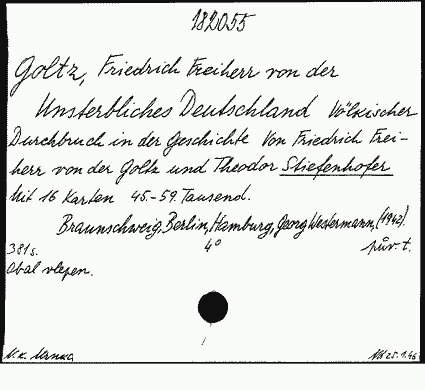 182055
Goltz, Friedrich Freiherr von der
Unsterbliches Deutschland Völkischer
Durchbruch in der Geschichte Von Friedrich Frei-
herr von der Goltz und Theodor Stiefenhofer
Mit 16 Karten 45.-59. Tausend.
Braunschweig, Berlin, Hamburg, Georg Westermann, (1942).
381 s. 4° pův. t.
Obal vlepen.
25.1.46